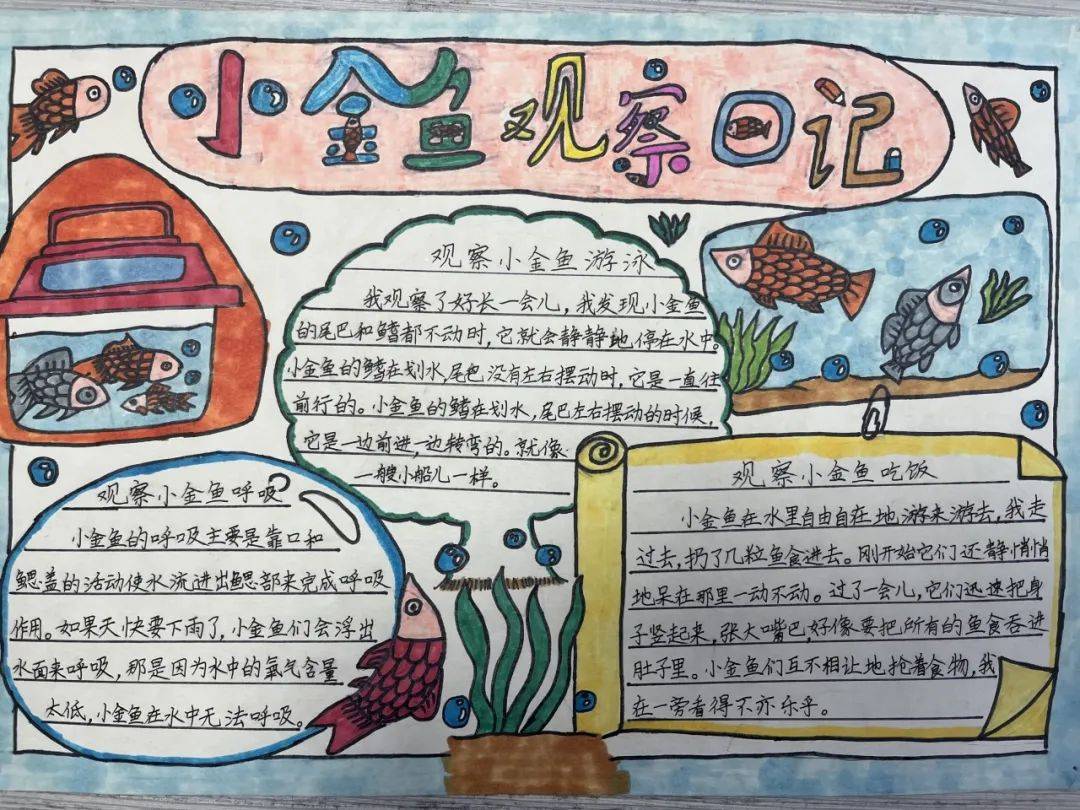 小金鱼观察日记
观察小金鱼游泳
我观察了好长一会儿，我发现小金鱼
的尾巴和鳍都不动时，它就会静静地停在水中。
小金鱼的鳍在划水，尾巴没有左右摆动时，它是一直往
前行的。小金鱼的鳍在划水，尾巴左右摆动的时候，
它是一边前进一边转弯的。就像
一艘小船儿一样。
观察小金鱼呼吸
小金鱼的呼吸主要是靠口和
鳃盖的活动使水流进出鳃部来完成呼吸
作用。如果天快要下雨了，小金鱼们会浮出
水面来呼吸，那是因为水中的氧气含量
太低，小金鱼在水中无法呼吸。
观察小金鱼吃饭
小金鱼在水里自由自在地游来游去，我走
过去，扔了几粒鱼食进去。刚开始它们还静悄悄
地呆在那里一动不动。过了一会儿，它们迅速把身
子竖起来，张大嘴巴，好像要把所有的鱼食吞进
肚子里。小金鱼们互不相让地抢着食物，我
在一旁看得不亦乐乎。